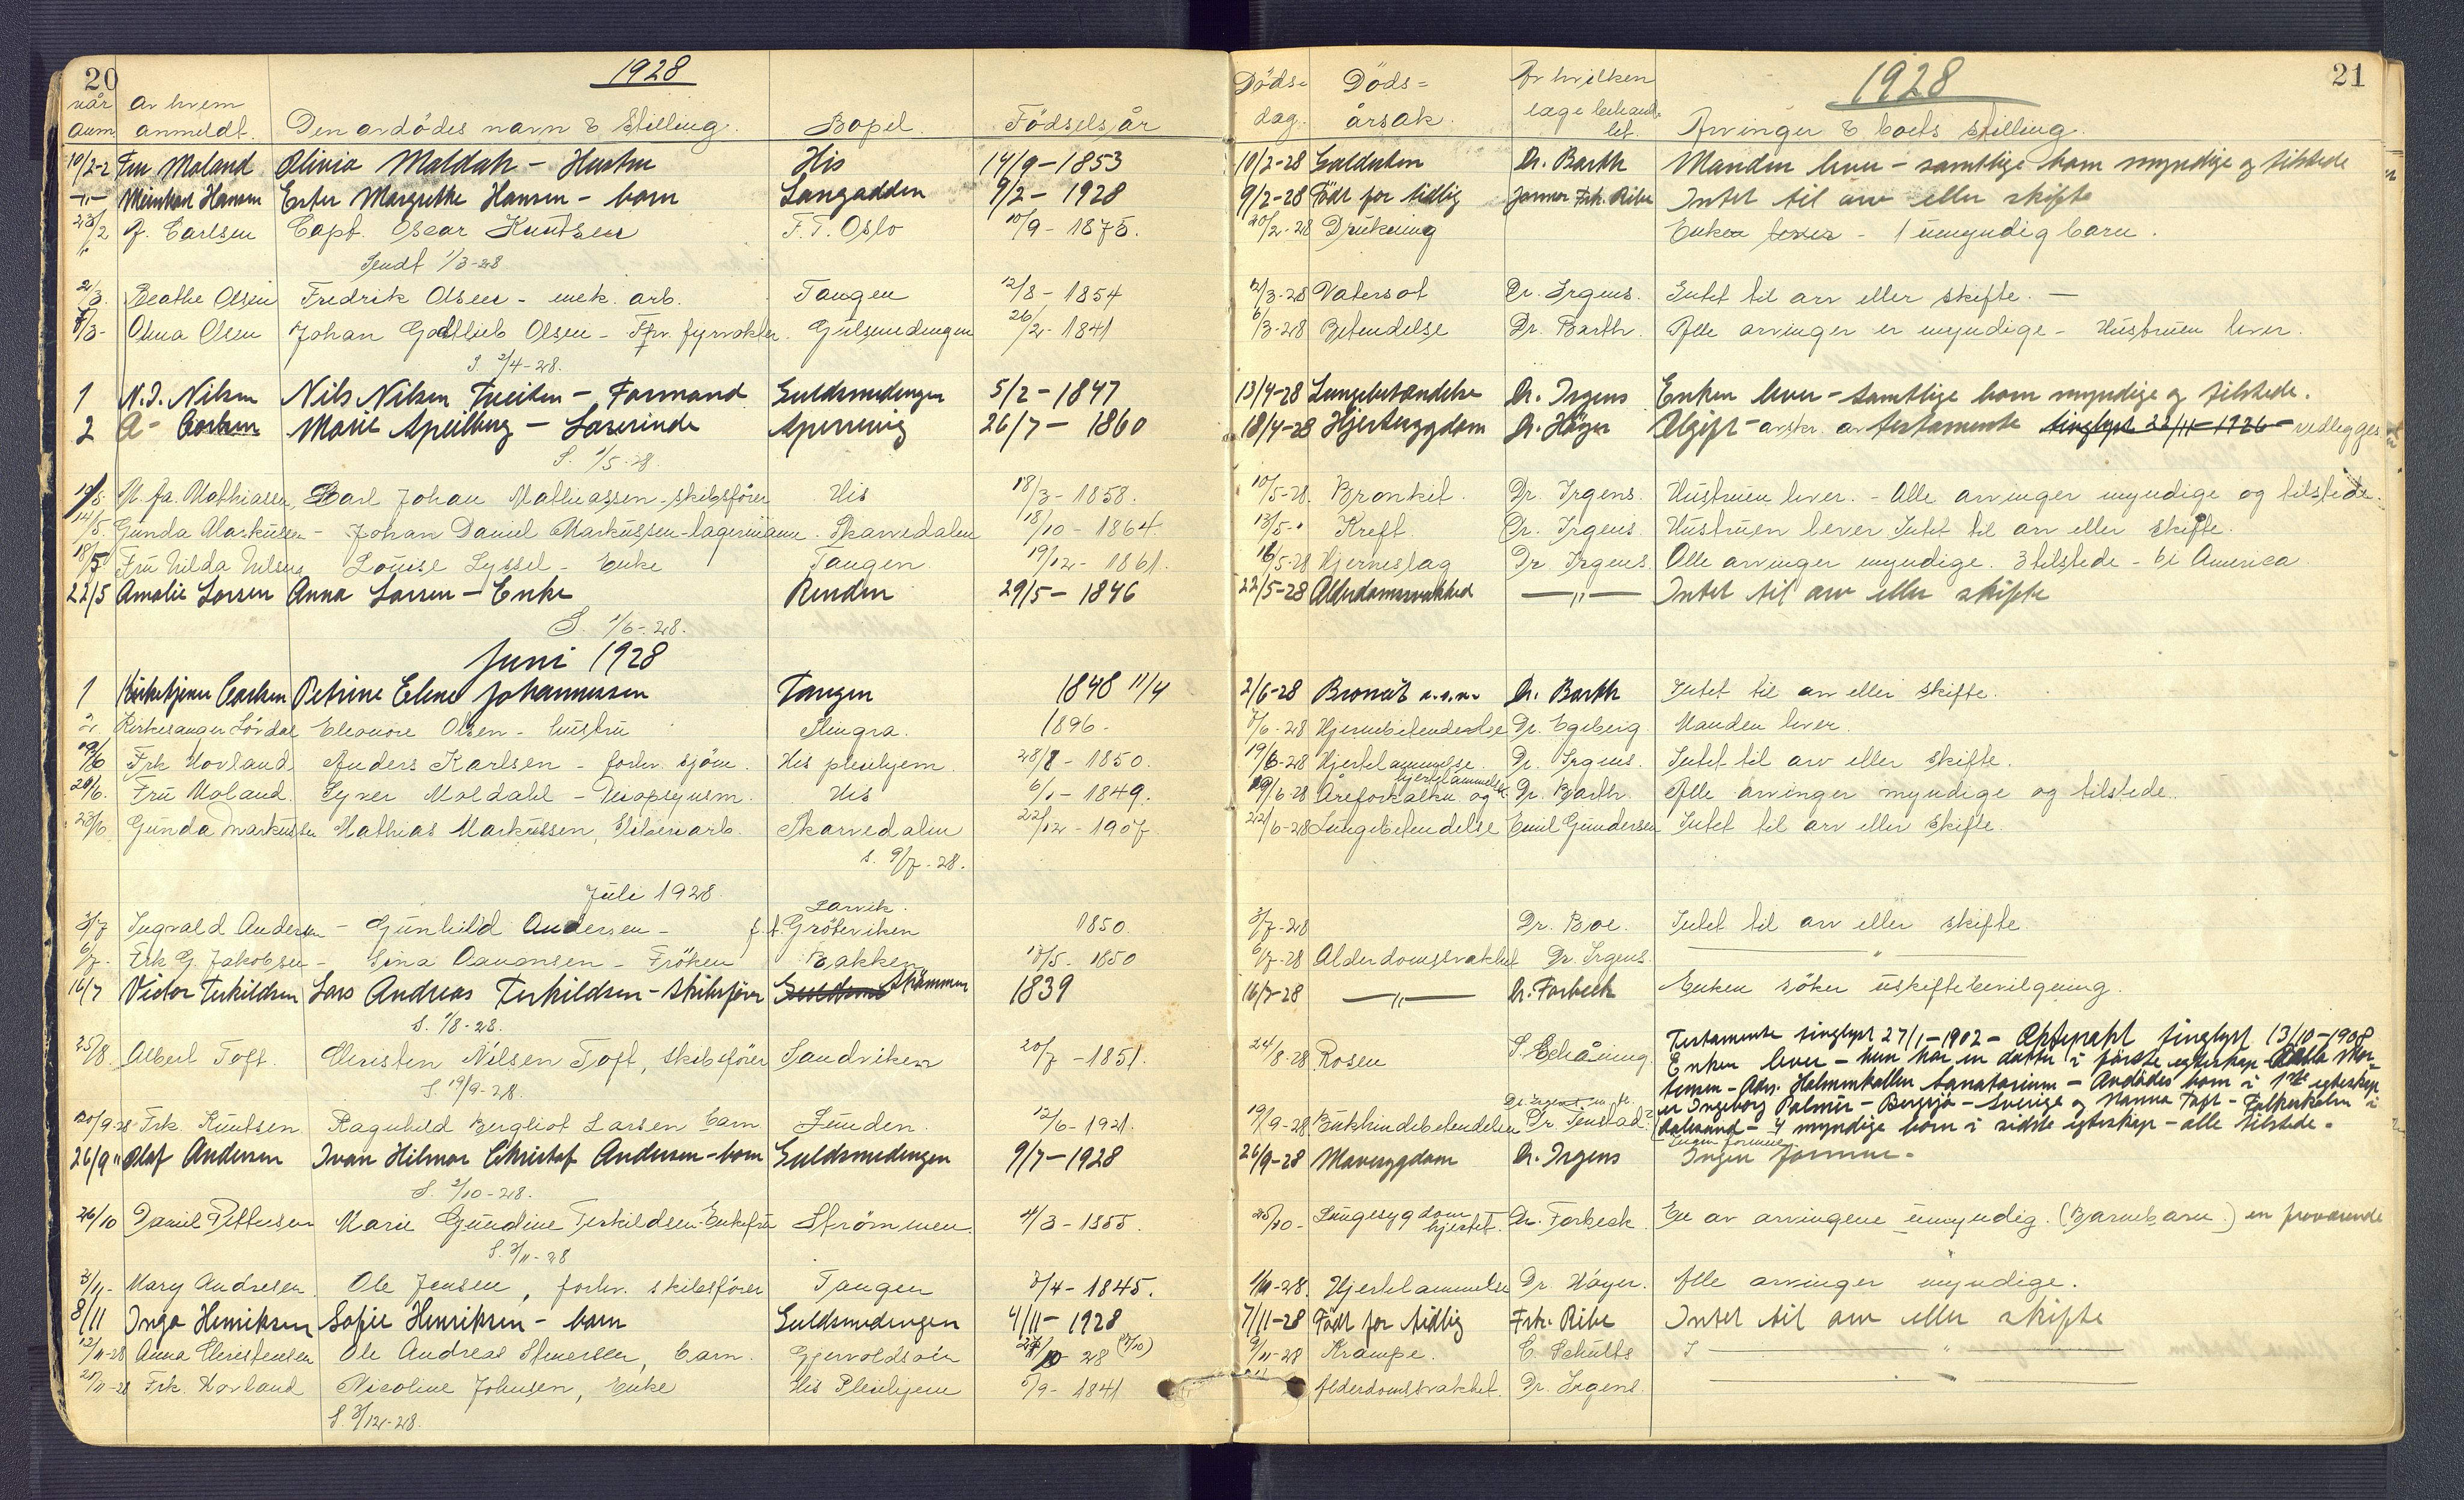 20
1928
når av hvem
anm. anmeldt. Den avdødes navn & Stilling. Bopel. Fødselsår
10/2-2 Fru Moland Olivia Moldah - Hustru His 14/9-1853
-"- Meinhart Hansen Ester Margrethe Hansen - barn Langodden 9/2-1928
23/2 A. Carlsen Capt. Oscar Knutsen F.T. Oslo 10/9-1875.
Sendt 1/3-28
2/3. Beathe Olsen Fredrik Olsen - mek. arb. Tangen 12/8-1854
7/3- Olina Olsen Johan Gottlieb Olsen - Fhv. fyrvokter. Gulsmedengen 26/2-1841
S. 2/4-28.
1 N.J. Nilsen Nils Nilsen Tveiten - Formand Guldsmedengen 5/2-1847
2 A- Carlsen Marie Speilberg - Lærerinde Sperrevig 26/7-1860
S. 1/5-28.
10/5. M. fa. Mathiasen Karl Johan Mathiassen - skibsfører His 18/3-1858.
14/5. Gunda Markusen - Johan Daniel Markussen - lagermann. Skarvedalen 18/10-1864.
18/5 Fru Hilda Nilsen Louise Lyssel - Enke Tangen. 19/12-1861.
22/5 Amalie Larsen Anna Larsen - Enke Renden 29/5-1846
S. 1/6-28.
Juni 1928
1 Kirketjener Carlsen Petrine Elene Johannessen Tangen 1848 11/4
2. Kirkesanger Løvdal Eleonore Olsen - hustru Slingra. 1896-
19/6 Frk Hovland Anders Karlsen - forhv. sjøm. His pleiehjem 28/8-1850.
20/6. Fru Moland. Syver Moldahl - Decopsynsm. His 6/1-1849.
23/6 Gunda Markussen Mathias Markussen, Sliberiarb. Skarvedalen 22/12-1907.
S. 9/7-28.
Juli 1928. Larvik.
3/7 Ingvald Andersen - Gunhild Andersen - f.t. Grøterviken 1850.
6/7. Frk G. Jakobsen - Gina Aanonsen - Frøken Bakken 13/5-1850
16/7 Victor Terkildsen Lars Andreas Terkildsen - Skibsfører Strømmen 1839
S. 1/8-28.
25/8. Albert Toft. Christen Nilsen Toft, skibsfører Sandviken 20/7-1851.
S. 19/9-28.
20/9-28 Frk. Knutsen Ragnhild Bergliot Larsen barn Lunden. 12/6-1921.
26/9" Olaf Andersen Ivan Hilmar Christof Andersen - barn Guldsmedengen 9/7-1928
S. 2/10-28.
26/10 Daniel Pettersen Marie Gundine Terkildsen - Enkefru Strømmen. 4/3-1855.
S. 3/11-28
3/11- Mary Andresen. Ole Jensen, forhv. skibsfører Tangen 3/4-1845.
8/11 Inga Henriksen Sofie Henriksen - barn Guldsmedengen 4/11-1928
12/11-28 Anna Christensen Ole Andreas, barn. Gjervoldsøen 10-28
Frk. Hovland Nicoline Johnsen, Enke His Pleiehjem 5/9-1841
S. 3/12-28.
21
1928
Døds= Døds= Av hvilken
dag. årsak. læge behandlet. Arvinger & boets stilling.
10/2-28 Galdesten Dr. Barth Manden lever - samtlige barn myndige og tilstede
9/2-28 Født for tidlig Jormor Frk. Ribe Intet til arv eller skifte
20/2-28 Drukning Enken lever - 1 umyndig barn.
2/3-28 Vatersot Dr. Irgens. Intet til arv eller skifte. -
6/3-28 Betendelse Dr. Barth. Alle arvinger er myndige - Hustruen lever.
13/4-28 Lungebetændelse Dr. Irgens Enken lever - samtlige barn myndige og tilstede.
18/4-28 Hjertesygdom Dr. Høyer Ugift - avskr. av testamente tinglyst 22/11-1926 - vedlegges
10/5-28. Bronkit. Dr. Irgens. Hustruen lever. - Alle arvinger myndige og tilstede.
13/5-" Kreft. Dr. Irgens. Hustruen lever Intet til arv eller skifte.
16/5-28 Hjerneslag Dr. Irgens. Alle arvinger myndige. 3 tilstede - 6 i America.
22/5-28 Alderdomssvakhed -"- Intet til arv eller skifte
2/6-28 Broncit Dr. Barth Intet til arv eller skifte.
7/6-28 Hjernebetendelse Dr. Egeberg Manden lever.
19/6-28 Hjertelammelse. Dr. Irgens. Intet til arv eller skifte.
19/6-28 Åreforkalkn. og hjertelammelse Dr. Barth. Alle arvinger myndige og tilstede.
22/6-28 Lungebetendelse Emil Gundersen Intet til arv eller skifte.
3/7-28 Dr. Boe. Intet til arv eller skifte.
6/7-28 Alderdomssvakhet Dr. Irgens. -"-
16/7-28 -"- Dr. Forbech Enken søker uskiftebevilgning.
24/8-28 Rosen S. Schåning. Testamente tinglyst 27/1-1902 - Ektepakt tinglyst 13/10-1908
Enken lever - hun har en datter i første egteskap -
- Adr. Holmenkollen Sanatorium - Avdødes barn i 1ste egteskap
er Ingeborg Palmér - Bergsjø - Sverige og Nanna Toft - i
- 4 myndige barn i sidste egteskap - alle tilstede.
19/9-28 Bukhindebetendelse Dr. Tenstad? Ingen formue.
26/9-28 Mavesygdom Dr. Irgens Ingen formue.
25/10- Lungesygdom hjertet. Dr. Forbech. En av arvingene umyndig. (Barnebarn.)
1/11-28. Hjertelammelse Dr. Høyer. Alle arvinger myndige.
7/11-28 Født for tidlig Frk. Ribe Intet til arv eller skifte
9/11-28 Krampe. C. Schults -"-
Alderdomssvakhet. Dr. Irgens. -"-